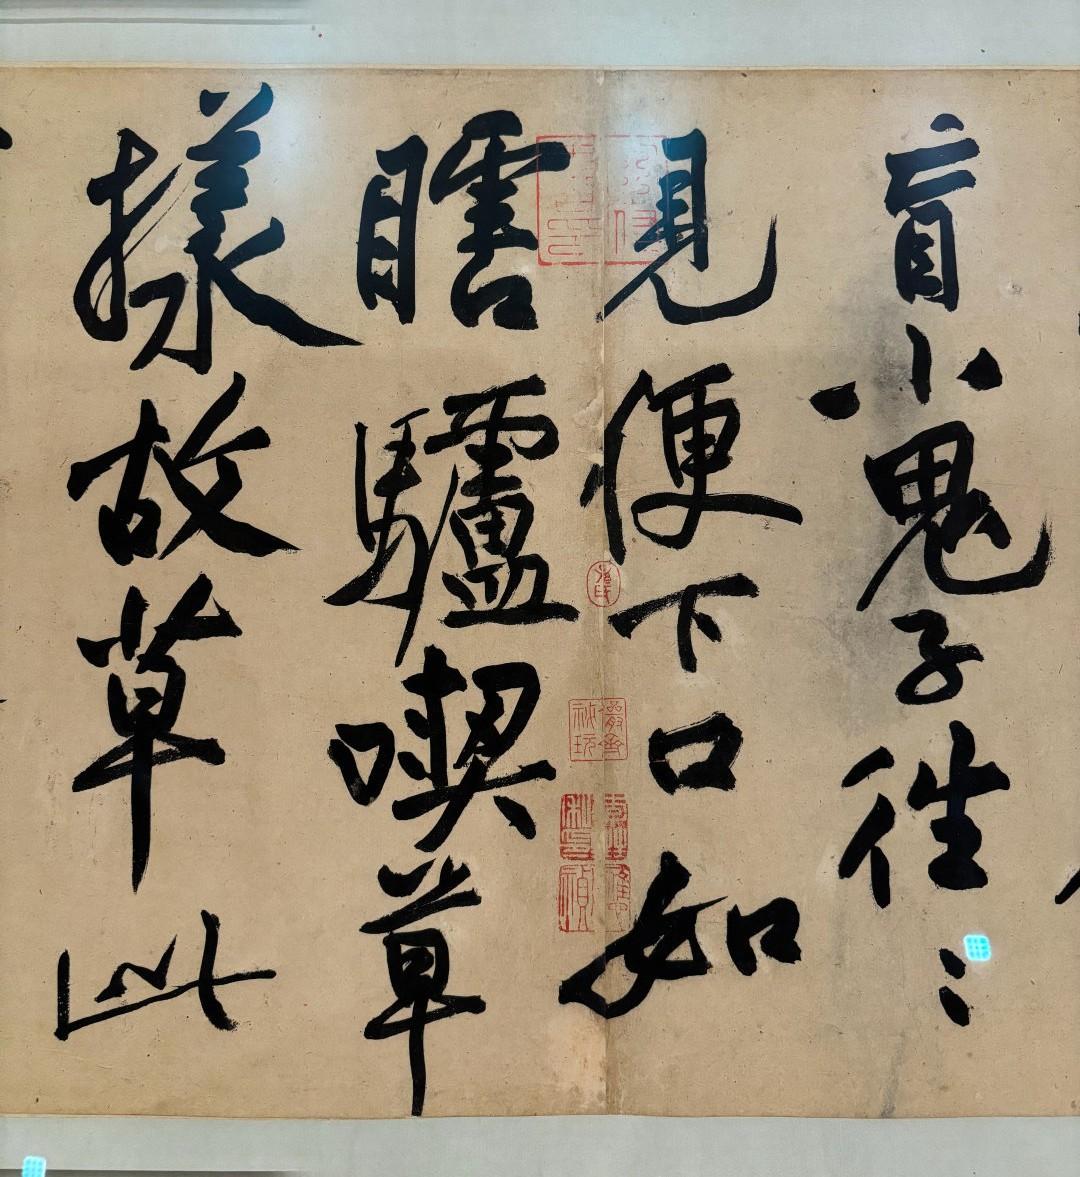 盲小鬼子徃〻
見便下口如
瞎驢喫草
樣故草此